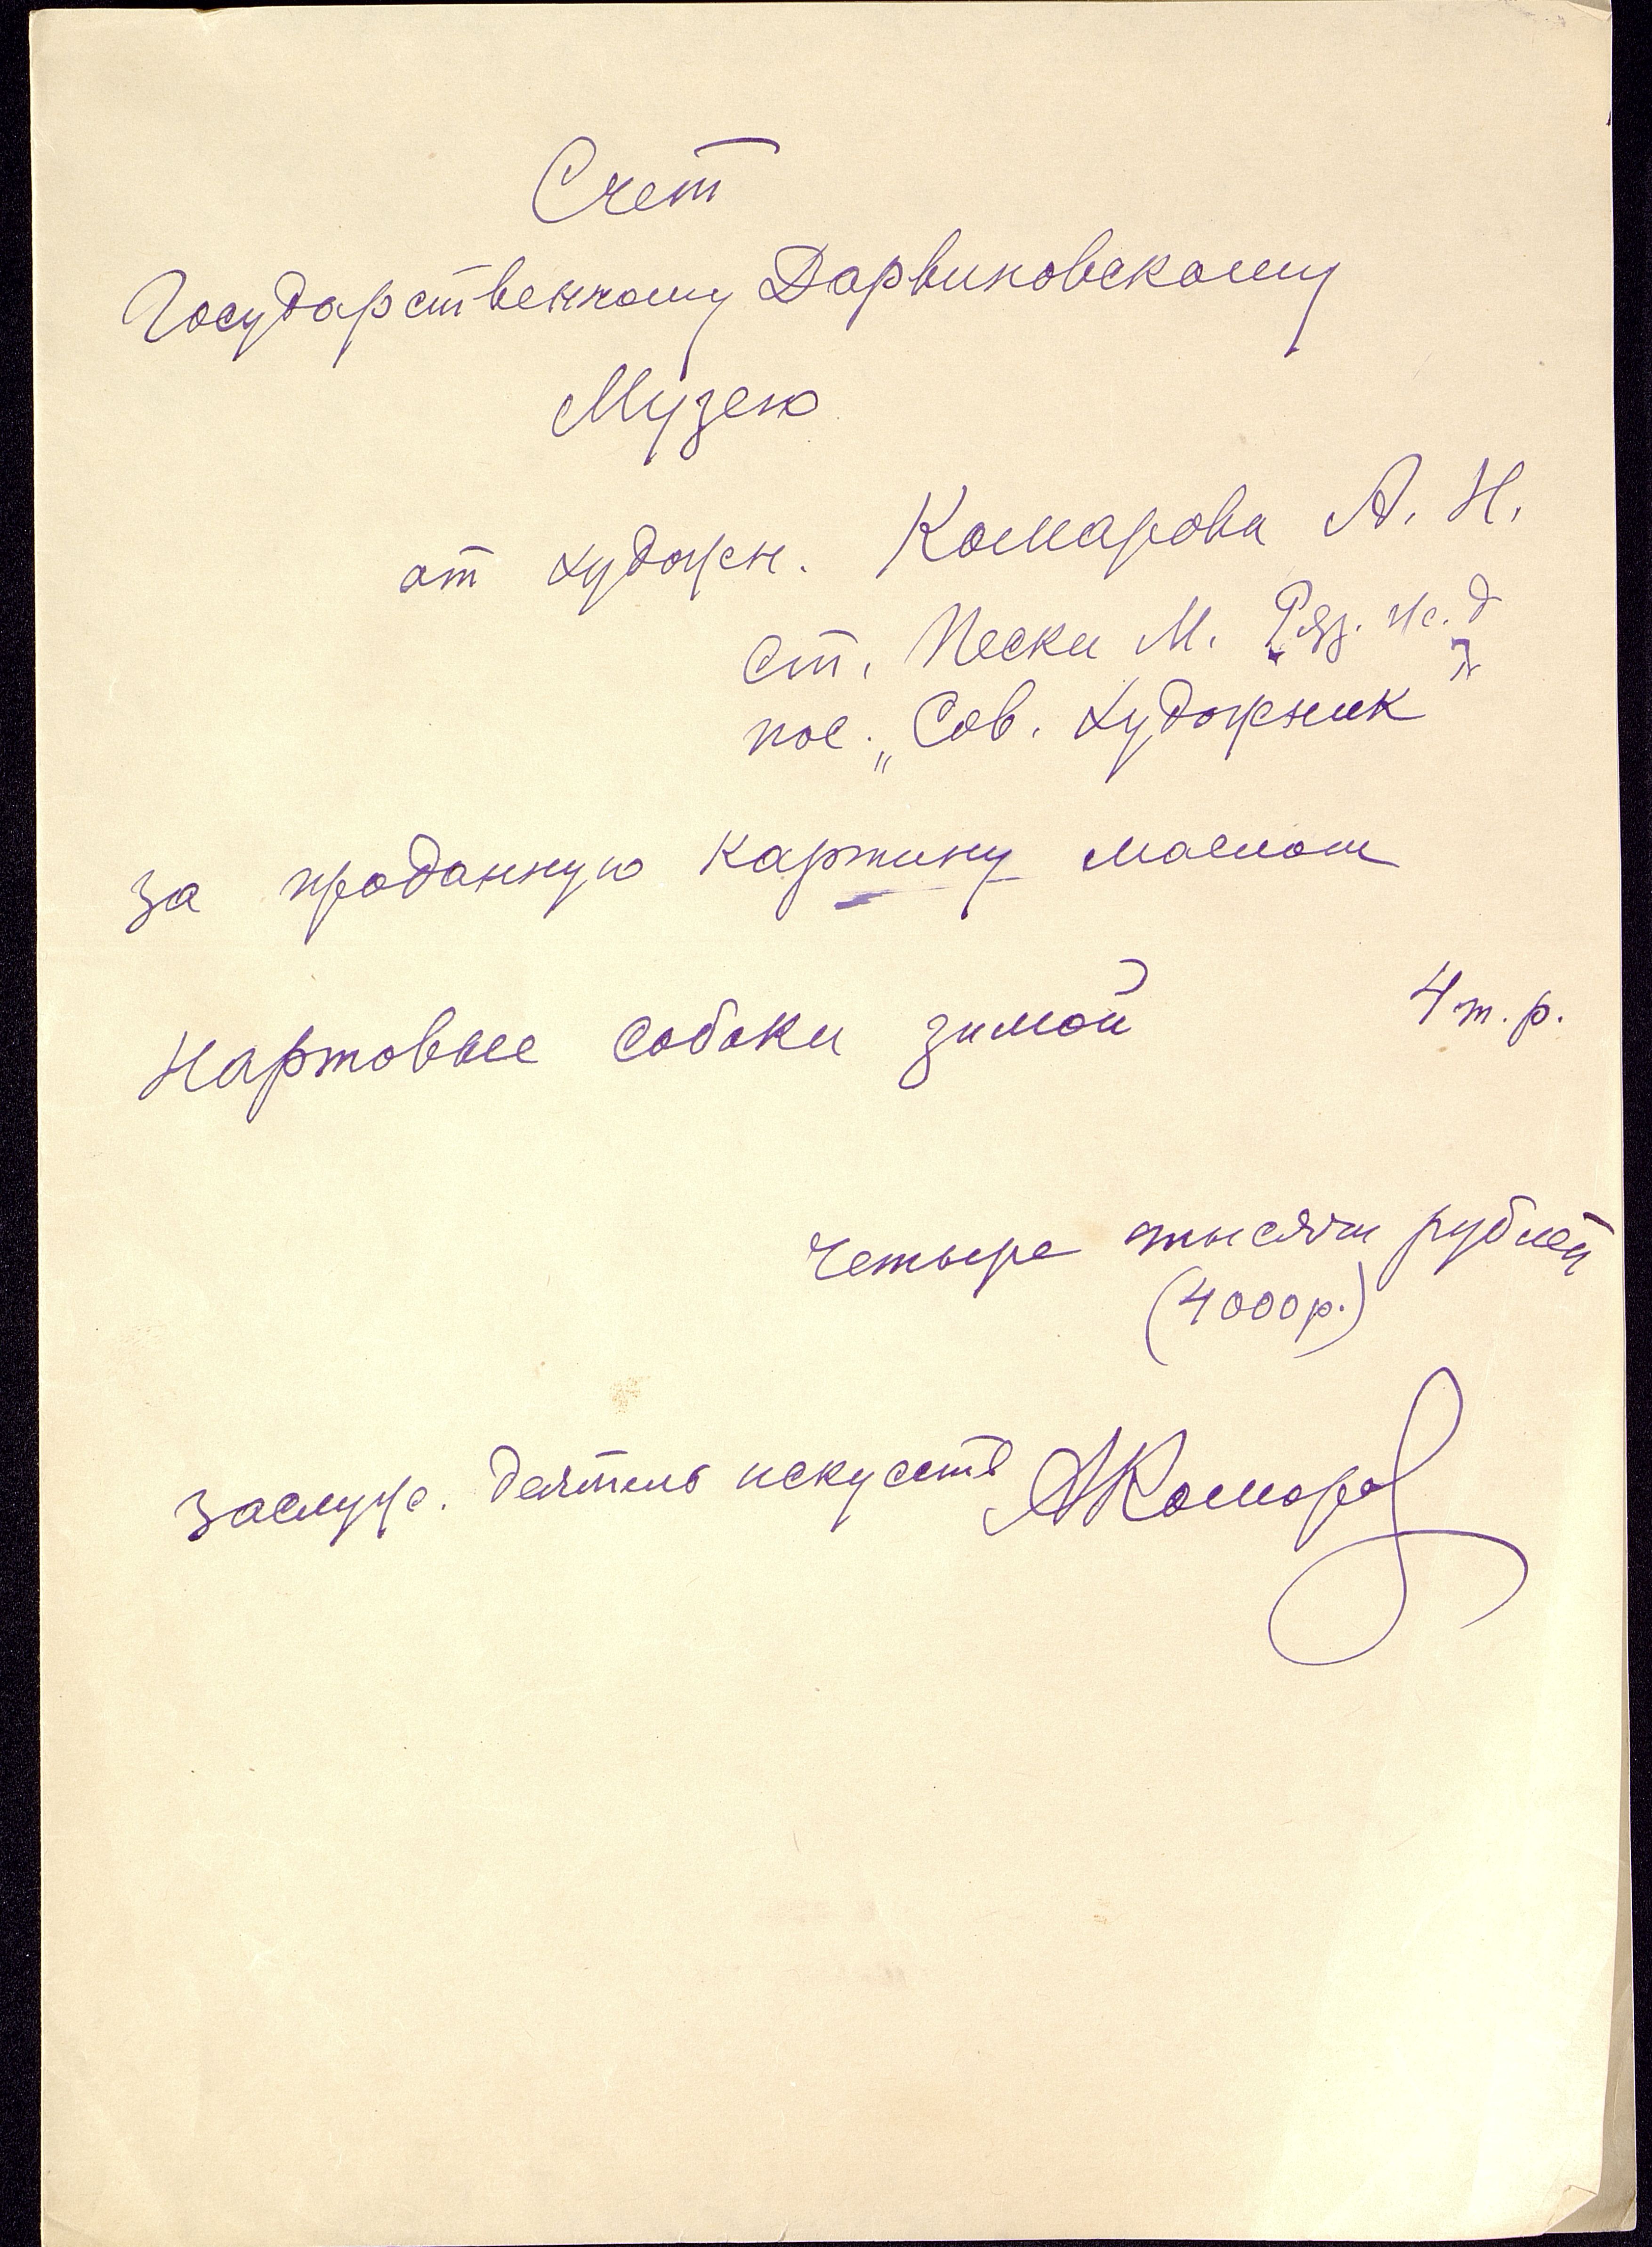 Счет
Государственному Дарвиновскому
Музею
от худож. Комарова А. Н.
ст. Пески М. Ряз. ж. д
пос. „Сов. художник"
за проданную картину маслом
Нартовые собаки зимой 4 т. р.
четыре тысячи рублей
(4000 р.)
заслуж. деятель искусств АКомаров